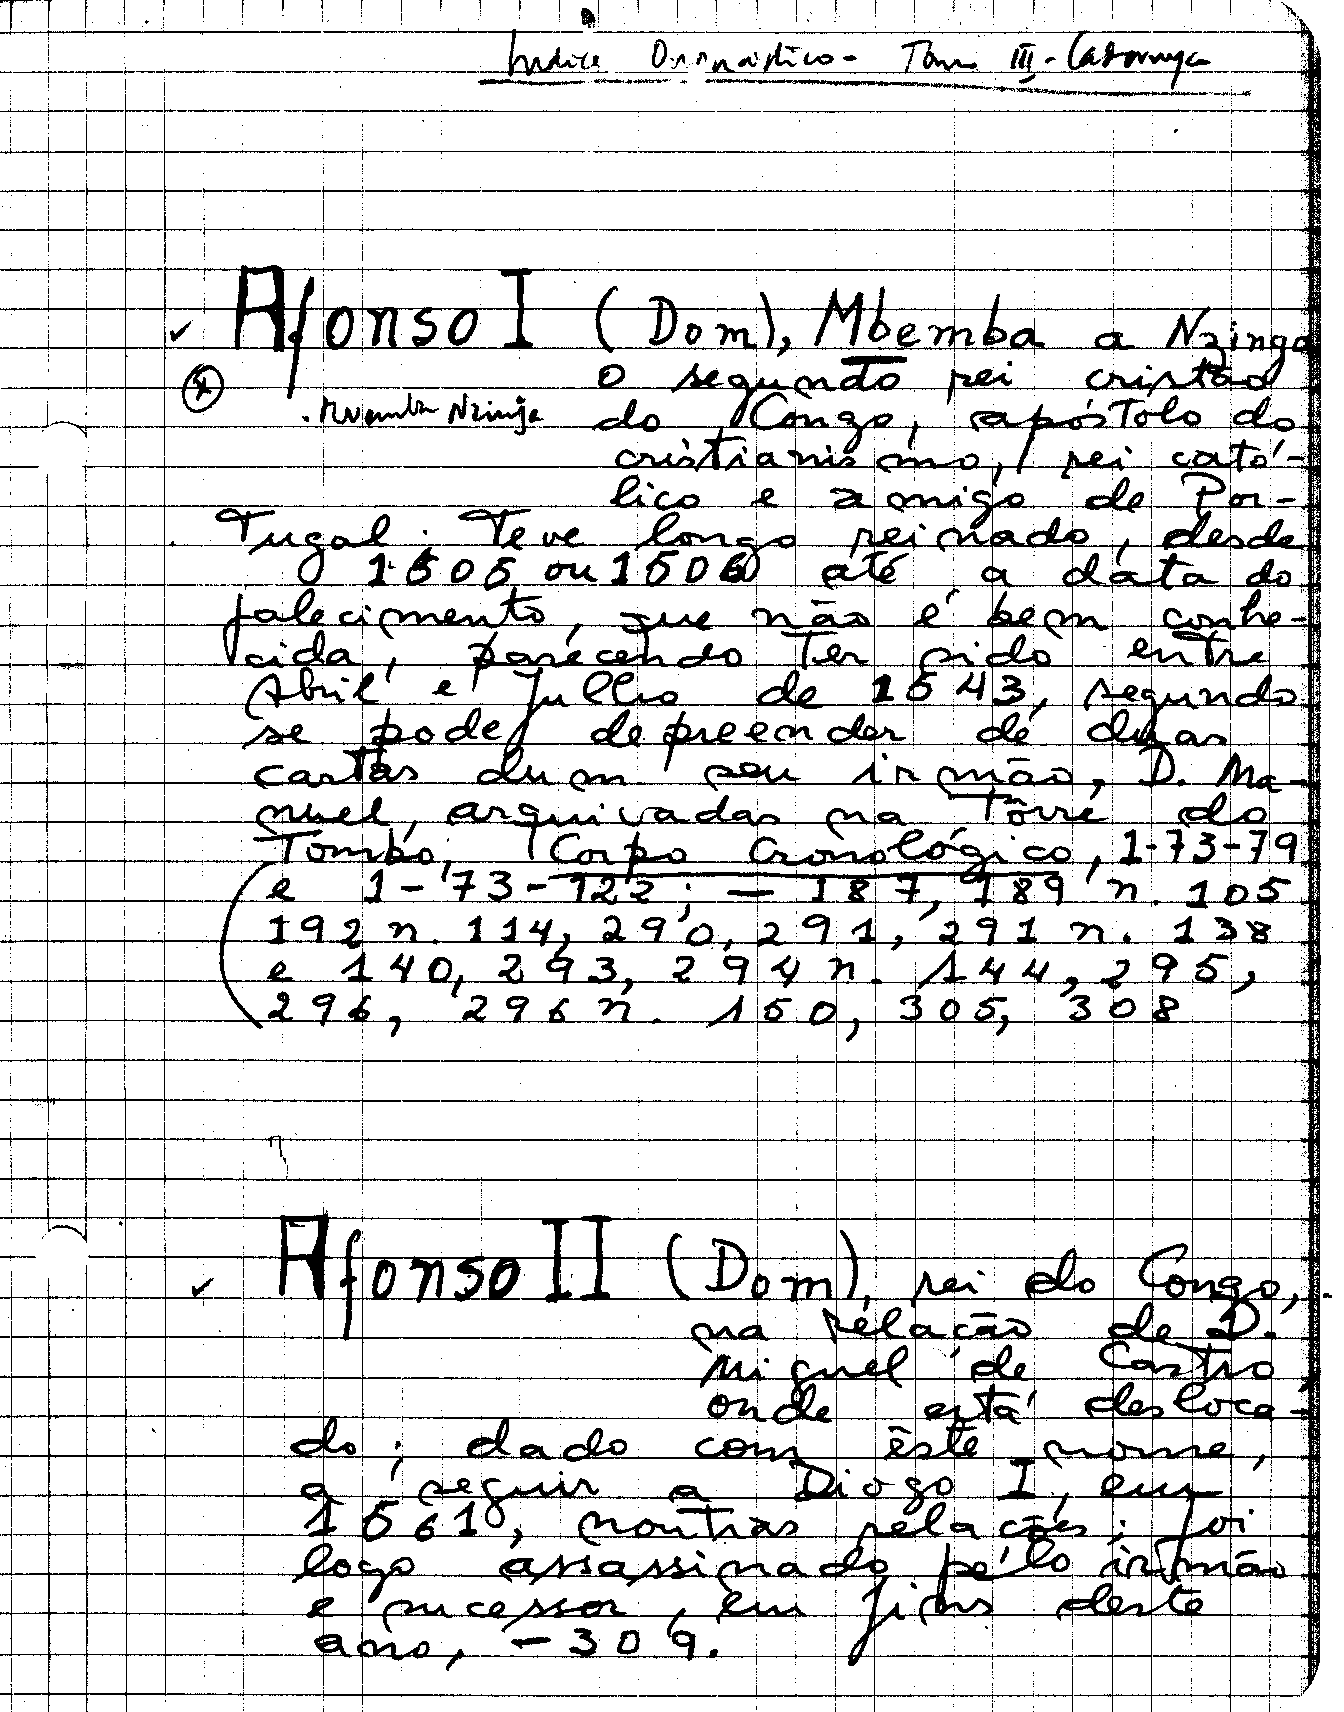 Indice Onomástico - Tomo III - Cadornega
✓ Afonso I (Dom), Mbemba a Nzinga
O segundo rei cristão
. Mvemba Nzinga
do Congo, apóstolo do
cristianismo, rei cató-
lico e amigo de Por-
tugal. Teve longo reinado, desde
1505 ou 1506 até a data do
falecimento, que não é bem conhe-
cida, parecendo ter sido entre
Abril e Julho de 1543, segundo
se pode depreender de duas
cartas dum seu irmão, D. Ma-
nuel, arquivadas na Tôrre do
Tombo, Corpo Cronológico, 1-73-79
e 1-73-122; — 187, 189 n. 105
192 n. 114, 290, 291, 291 n. 138
e 140, 293, 294 n. 144, 295,
296, 296 n. 150, 305, 308
✓ Afonso II (Dom), rei do Congo,
na relação de D.
Miguel de Castro,
onde está desloca-
do; dado com êste nome,
a seguir a Diogo I, em
1561, noutras relações; foi
logo assassinado pelo irmão
e sucessor, em fins deste
ano, - 309.